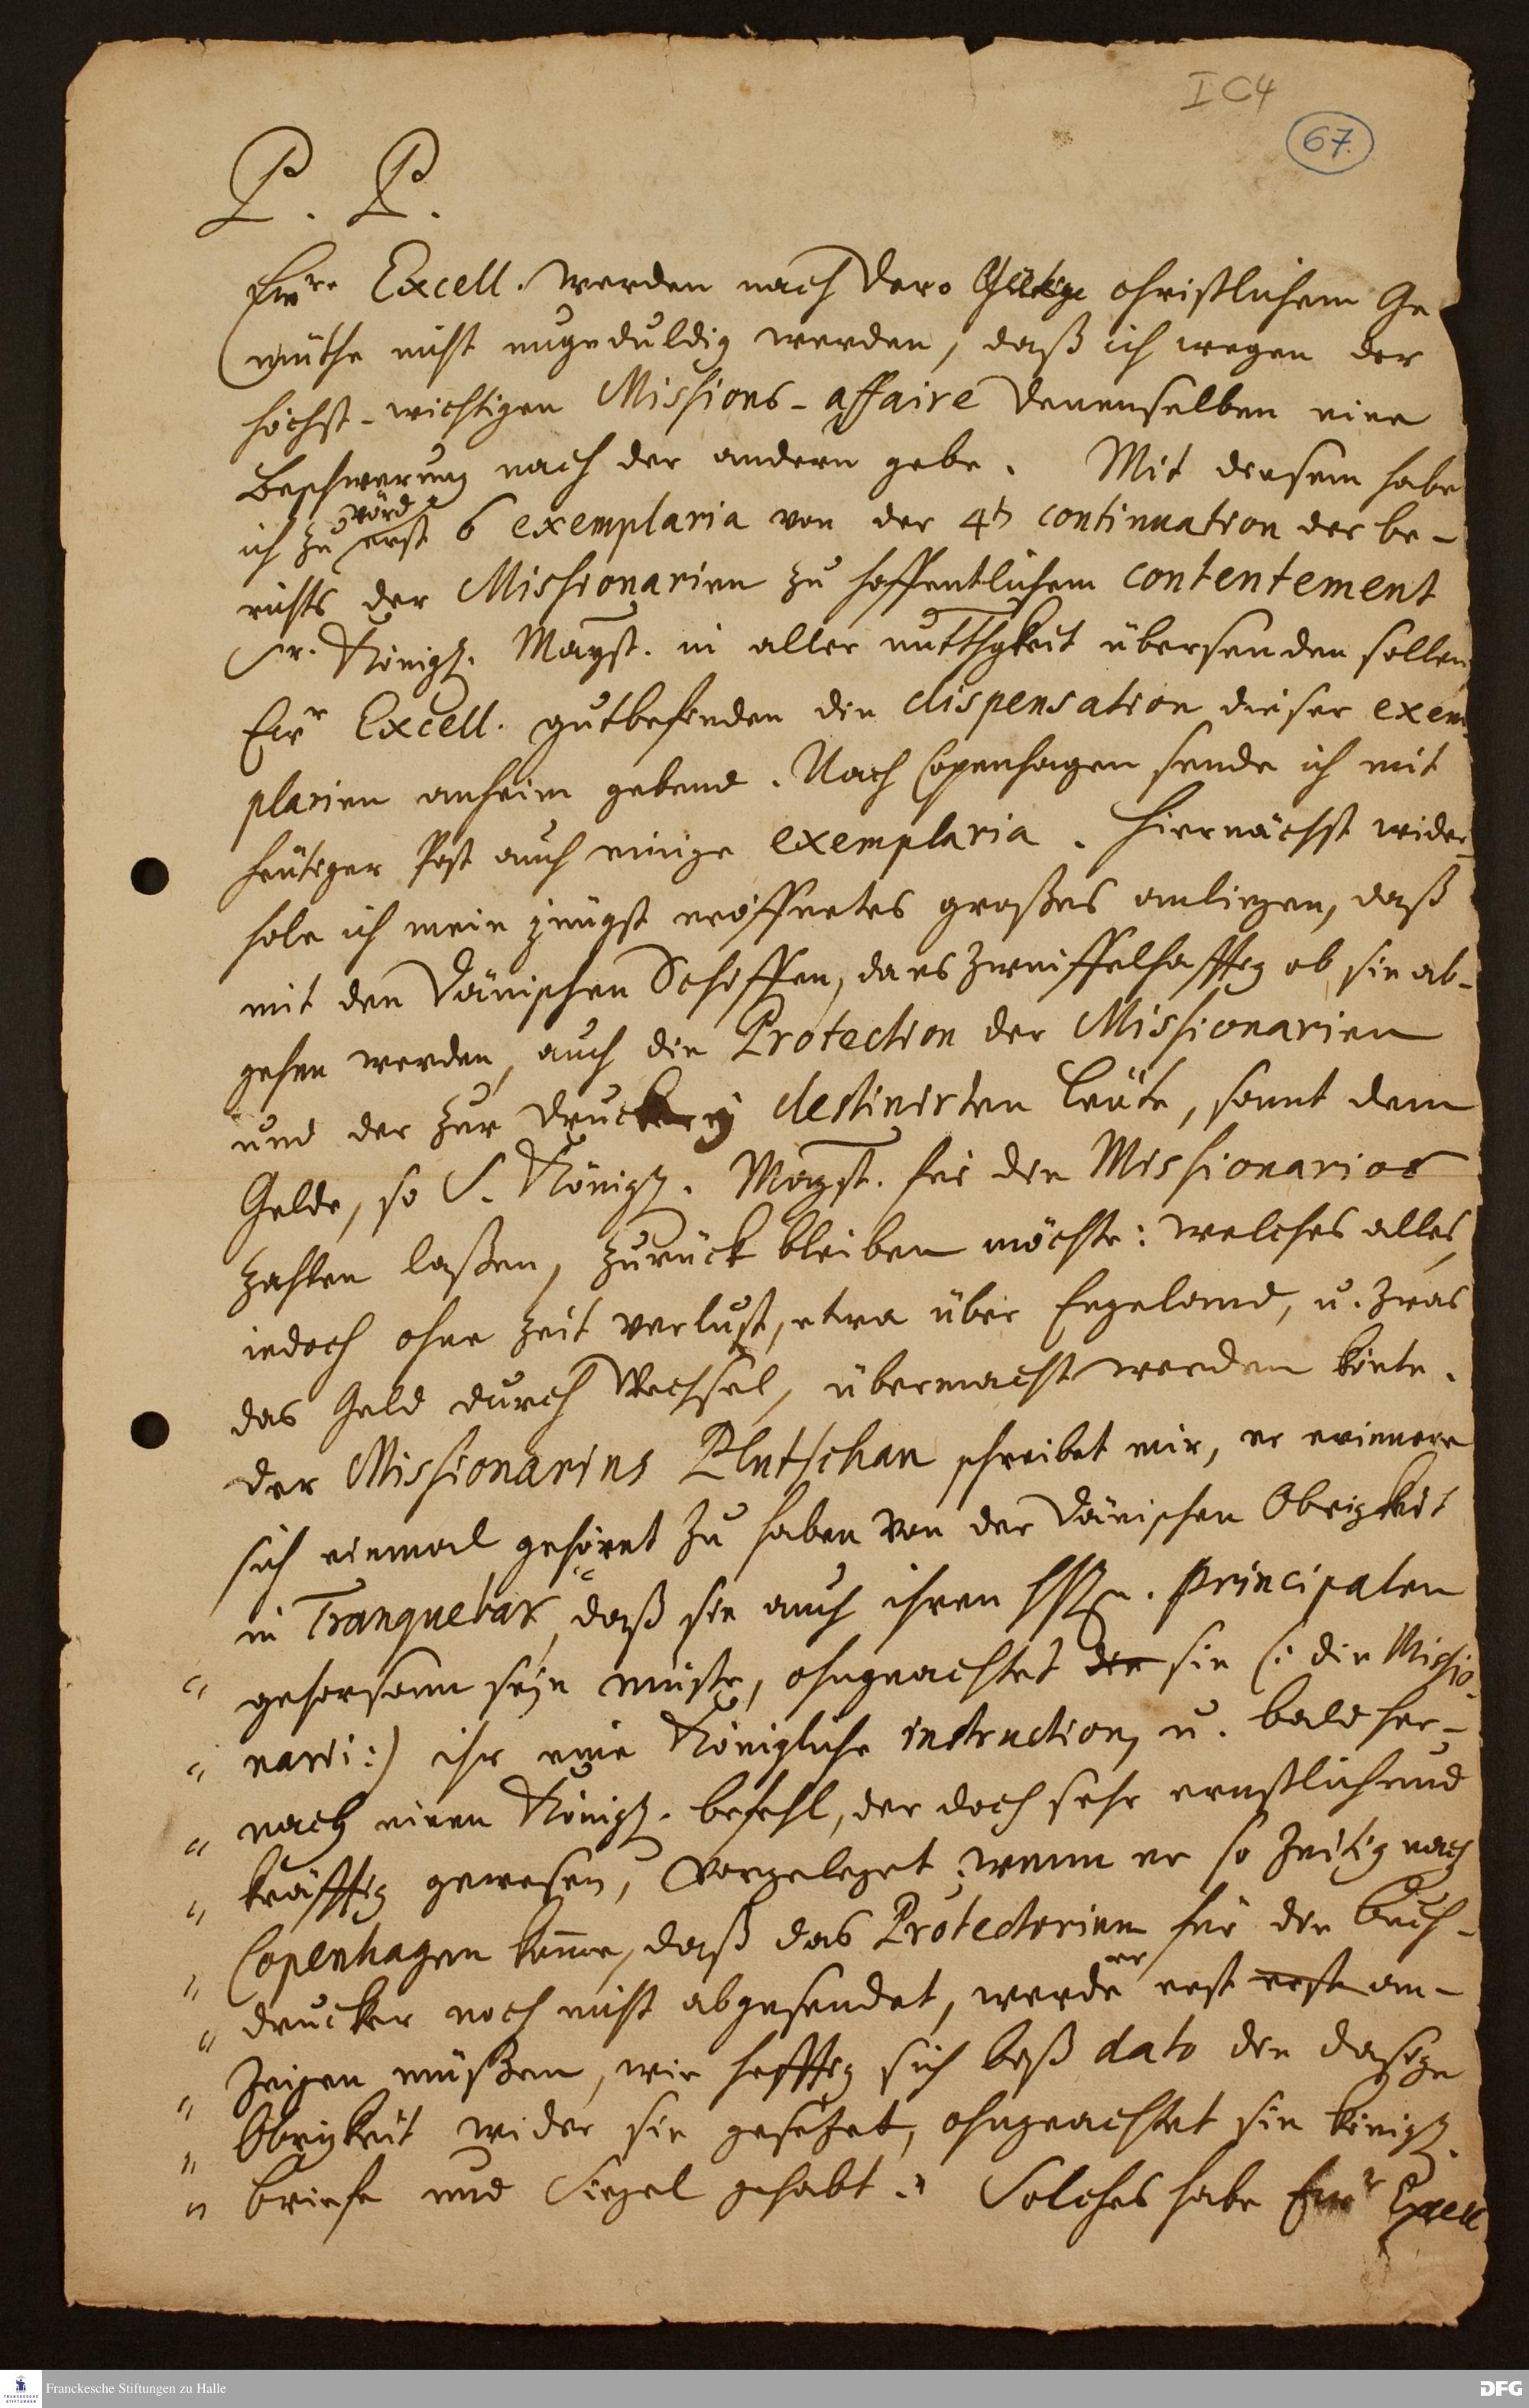 I C 4
67.
P. P.
Ewre Excell. werden nach Dero christlichem Ge
müthe nicht ungeduldig werden, daß ich wegen der
höchst-wichtigen Missions-affaire Denenselben eine
Beschwerung nach der andern gebe. Mit diesem habe
vörd
ich zu erst 6 exemplaria von der 4t continuation der be-
richts der Missionarien zu hoffentlichem contentement
Sr. Königl. Mayst. in aller untthgkeit übersenden sollen
Ewr Excell. gutbefinden die dispensation dieser exem
plarien anheim gebend. Nach Copenhagen sende ich mit
heutiger Post auch einige exemplaria. Hiernächst wider-
hole ich mein jüngst eröffnetes großes anliegen, daß
mit den Dänischen Schiffen, da es zweiffelhafftig ob sie ab-
gehen werden, auch die Protection der Missionarien
und der zur Druckerey destinirten Leute, samt dem
Gelde, so S. Königl. Mayst. für die Missionarios
zahlen laßen, zurück bleiben möchte: welches alles
iedoch ohne Zeit verlust, etwa über Engeland, u. zwar
das Geld durch Wechsel, übermacht werden könte.
Der Missionarius Plutschau schreibet mir, er erinnere
sich einmal gehöret zu haben von der Dänischen Obrigkeit
in Tranquebar, "daß sie auch ihren HHn. Principalen
" gehorsam seyn müste, ohngeachtet der sie (: die Missio-
" narii:) ihr eine Königliche instruction, u. bald her-
" nach einen Königl. befehl, der doch sehr ernstlich und
" kräfftig gewesen, vorgeleget: wenn er so zeitig nach
" Copenhagen komme, daß das Protectorium für die Buch-
er
" drucker noch nicht abgesendet, werde erst erst an-
" zeigen müßen, wie hefftig sich biß dato die dasige
" Obrigkeit wider sie gesetzet, ohngeachtet sie königl.
" briefe und Siegel gehabt." Solches habe Ewr Excell
Franckesche Stiftungen zu Halle
FRANCKESCHE STIFTUNGEN
DFG